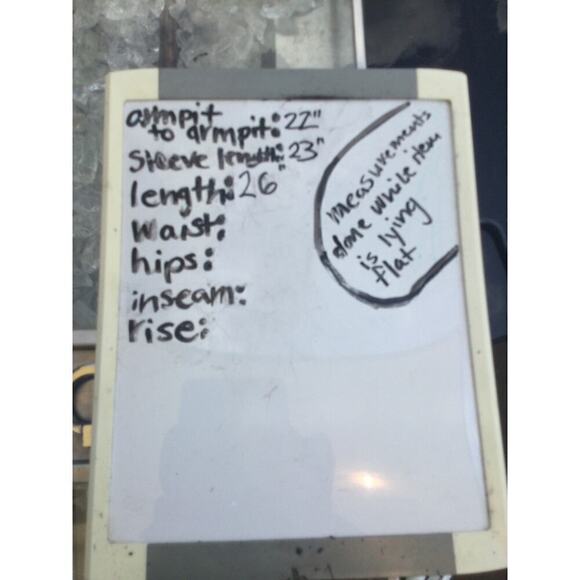 armpit
to armpit: 22"
Sleeve length: 23"
length: 26"
Waist:
hips:
inseam:
rise:
measurements
done while item
is lying
flat